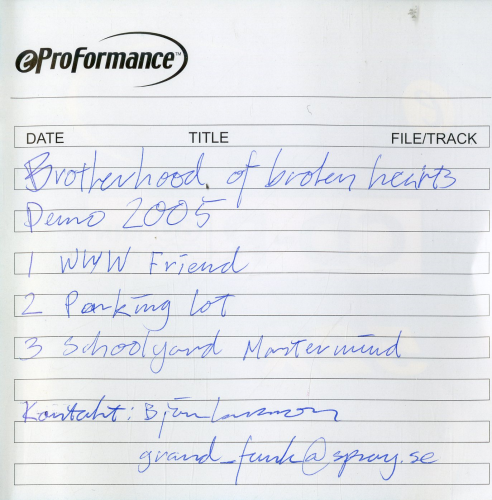 eProFormance™
DATE TITLE FILE/TRACK
Brotherhood of broken hearts
Demo 2005
1 WWW Friend
2 Parking lot
3 Schoolyard Mastermind
Kontakt: Björn
grand_funk@spray.se